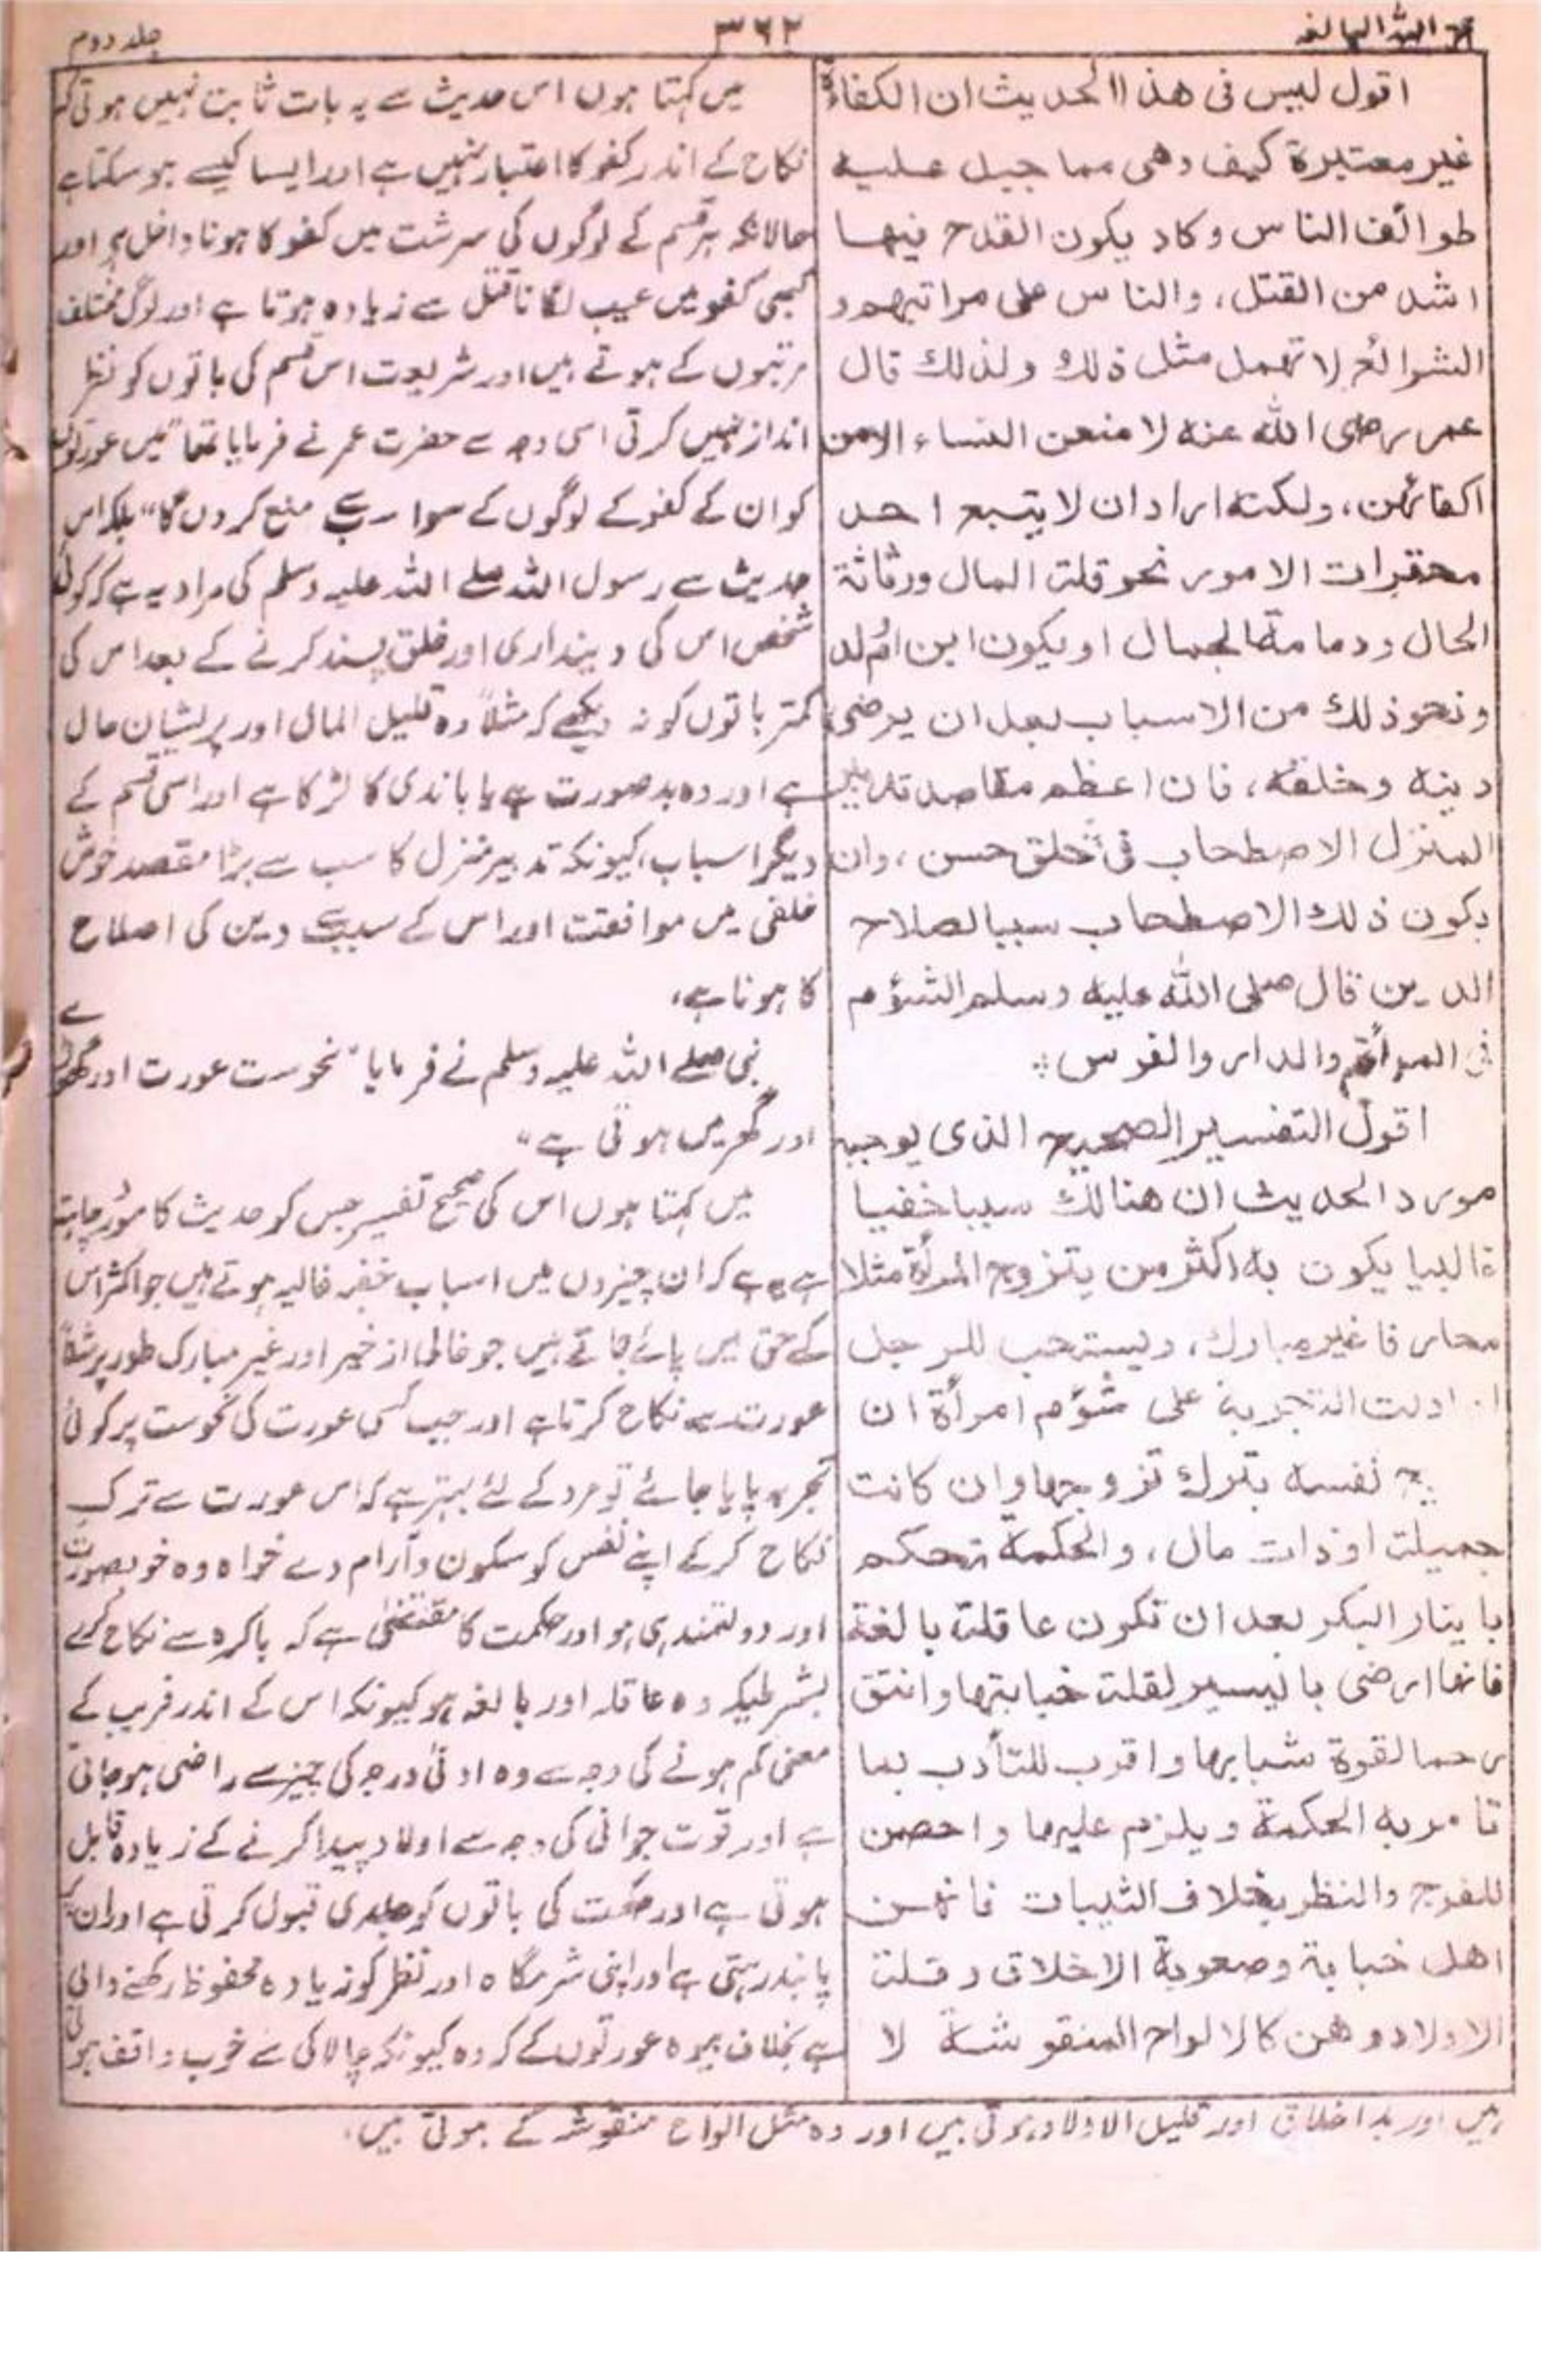 حجۃ اللہ البالغہ
۳۶۲
جلد دوم
اقول ليس فى هذا الحديث ان الكفاءة
غير معتبرة كيف وهى مما جبل عليه
طوائف الناس وكاد يكون القدح فيها
اشد من القتل، والناس على مراتبهم و
الشرائع لا تهمل مثل ذلك ولذلك قال
عمر رضى الله عنه لا منعن النساء الا من
اكفائهن، ولكنه اراد ان لا يتبع احد
محقرات الامور نحو قلة المال ورثاثة
الحال ودمامة الجمال او يكون ابن ام ولد
ونحو ذلك من الاسباب بعد ان يرضى
دينه وخلقه، فان اعظم مقاصد تدبير
المنزل الاصطحاب فى خلق حسن، وان
يكون ذلك الاصطحاب سببا لصلاح
الدين قال صلى الله عليه وسلم الشؤم
فى المرأة والدار والفرس ؞
اقول التفسير الصحيح الذى يوجبه
مورد الحديث ان هنالك سببا خفيا
غالبيا يكون به اكثر من يتزوج المرأة مثلا
محارفا غير مبارك، ويستحب للرجل
اذا دلت التجربة على شؤم امرأة ان
يريح نفسه بترك تزوجها وان كانت
جميلة او ذات مال، والحكمة تحكم
بايثار البكر بعد ان تكون عاقلة بالغة
فانها ارضى باليسير لقلة خبابتها وانتق
رحما لقوة شبابها واقرب للتأدب بما
تامر به الحكمة ويلزم عليها واحصن
للفرج والنظر بخلاف الثيبات فانهن
اهل خبابة وصعوبة الاخلاق وقلة
الاولاد وهن كالالواح المنقوشة لا
میں کہتا ہوں اس حدیث سے یہ بات ثابت نہیں ہوتی کہ
نکاح کے اندر کفو کا اعتبار نہیں ہے اور ایسا کیسے ہو سکتا ہے
حالانکہ ہر قسم کے لوگوں کی سرشت میں کفو کا ہونا داخل ہے اور
کبھی کفو میں عیب لگانا قتل سے زیادہ ہوتا ہے اور لوگ مختلف
مرتبوں کے ہوتے ہیں اور شریعت اس قسم کی باتوں کو نظر
انداز نہیں کرتی اسی وجہ سے حضرت عمر نے فرمایا تھا "میں عورتوں
کو ان کے کفو کے لوگوں کے سوا سب سے منع کر دوں گا" بلکہ اس
حدیث سے رسول اللہ صلے اللہ علیہ وسلم کی مراد یہ ہے کہ کوئی
شخص اس کی دینداری اور خلق پسند کرنے کے بعد اس کی
کمتر باتوں کو نہ دیکھے کہ مثلاً وہ قلیل المال اور پریشان حال
ہے اور وہ بد صورت ہے یا باندی کا لڑکا ہے اور اسی قسم کے
دیگر اسباب، کیونکہ تدبیر منزل کا سب سے بڑا مقصد خوش
خلقی میں موافقت اور اس کے سبب سے دین کی اصلاح
کا ہونا ہے،
نبی صلے اللہ علیہ وسلم نے فرمایا "نحوست عورت اور گھوڑے
اور گھر میں ہوتی ہے"
میں کہتا ہوں اس کی صحیح تفسیر جس کو حدیث کا مورد چاہتا
ہے یہ ہے کہ ان چیزوں میں اسباب خفیہ غالبہ ہوتے ہیں جو اکثر اس
کے حق میں پائے جاتے ہیں جو خالی از خیر اور غیر مبارک طور پر مثلاً
عورت سے نکاح کرتا ہے اور جب کسی عورت کی نحوست پر کوئی
تجربہ پایا جائے تو مرد کے لئے بہتر ہے کہ اس عورت سے ترک
نکاح کر کے اپنے نفس کو سکون و آرام دے خواہ وہ خوبصورت
اور دولتمند ہی ہو اور حکمت کا مقتضٰی ہے کہ باکرہ سے نکاح کرے
بشرطیکہ وہ عاقلہ اور بالغہ ہو کیونکہ اس کے اندر فریب کے
معنی کم ہونے کی وجہ سے وہ ادنٰی درجہ کی چیز سے راضی ہو جاتی
ہے اور قوت جوانی کی وجہ سے اولاد پیدا کرنے کے زیادہ قابل
ہوتی ہے اور حکمت کی باتوں کو جلدی قبول کرتی ہے اور ان کی
پابند رہتی ہے اور اپنی شرمگاہ اور نظر کو زیادہ محفوظ رکھنے والی
ہے بخلاف بیوہ عورتوں کے کہ وہ کیونکہ چالاکی سے خوب واقف ہوتی
ہیں اور بد اخلاق اور قلیل الاولاد ہوتی ہیں اور وہ مثل الواح منقوشہ کے ہوتی ہیں،